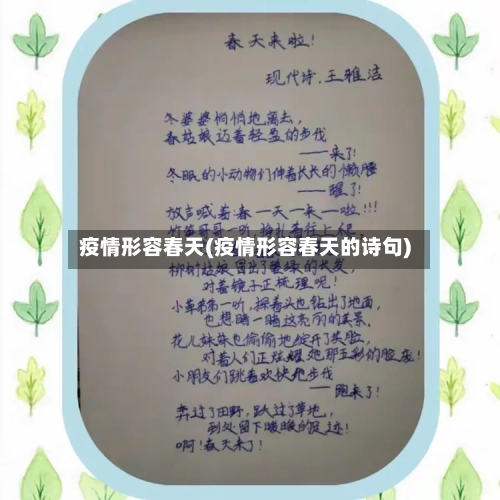 春天来啦!
现代诗.王雅洁
冬婆婆悄悄地离去,
春姑娘迈着轻盈的步伐
——来了!
冬眠的小动物们伸着长长的懒腰
——醒了!
放声喊着春—天—来—啦!!!
竹笋哥哥一听,挣扎着往上
疫情形容春天(疫情形容春天的诗句)
柳树姑娘留出了碧绿的长发,
对着镜子正梳理呢!
小草弟弟一听,探着头也钻出了地面,
也想瞄一瞄这亮丽的美景,
花儿妹妹也偷偷地绽开了笑脸,
对着人们正炫耀她那五彩的脸庞!
小朋友们跳着欢快地步伐
——跑来了!
奔过了田野,跃过了草地,
到处留下暖暖的足迹!
啊!春天来了!